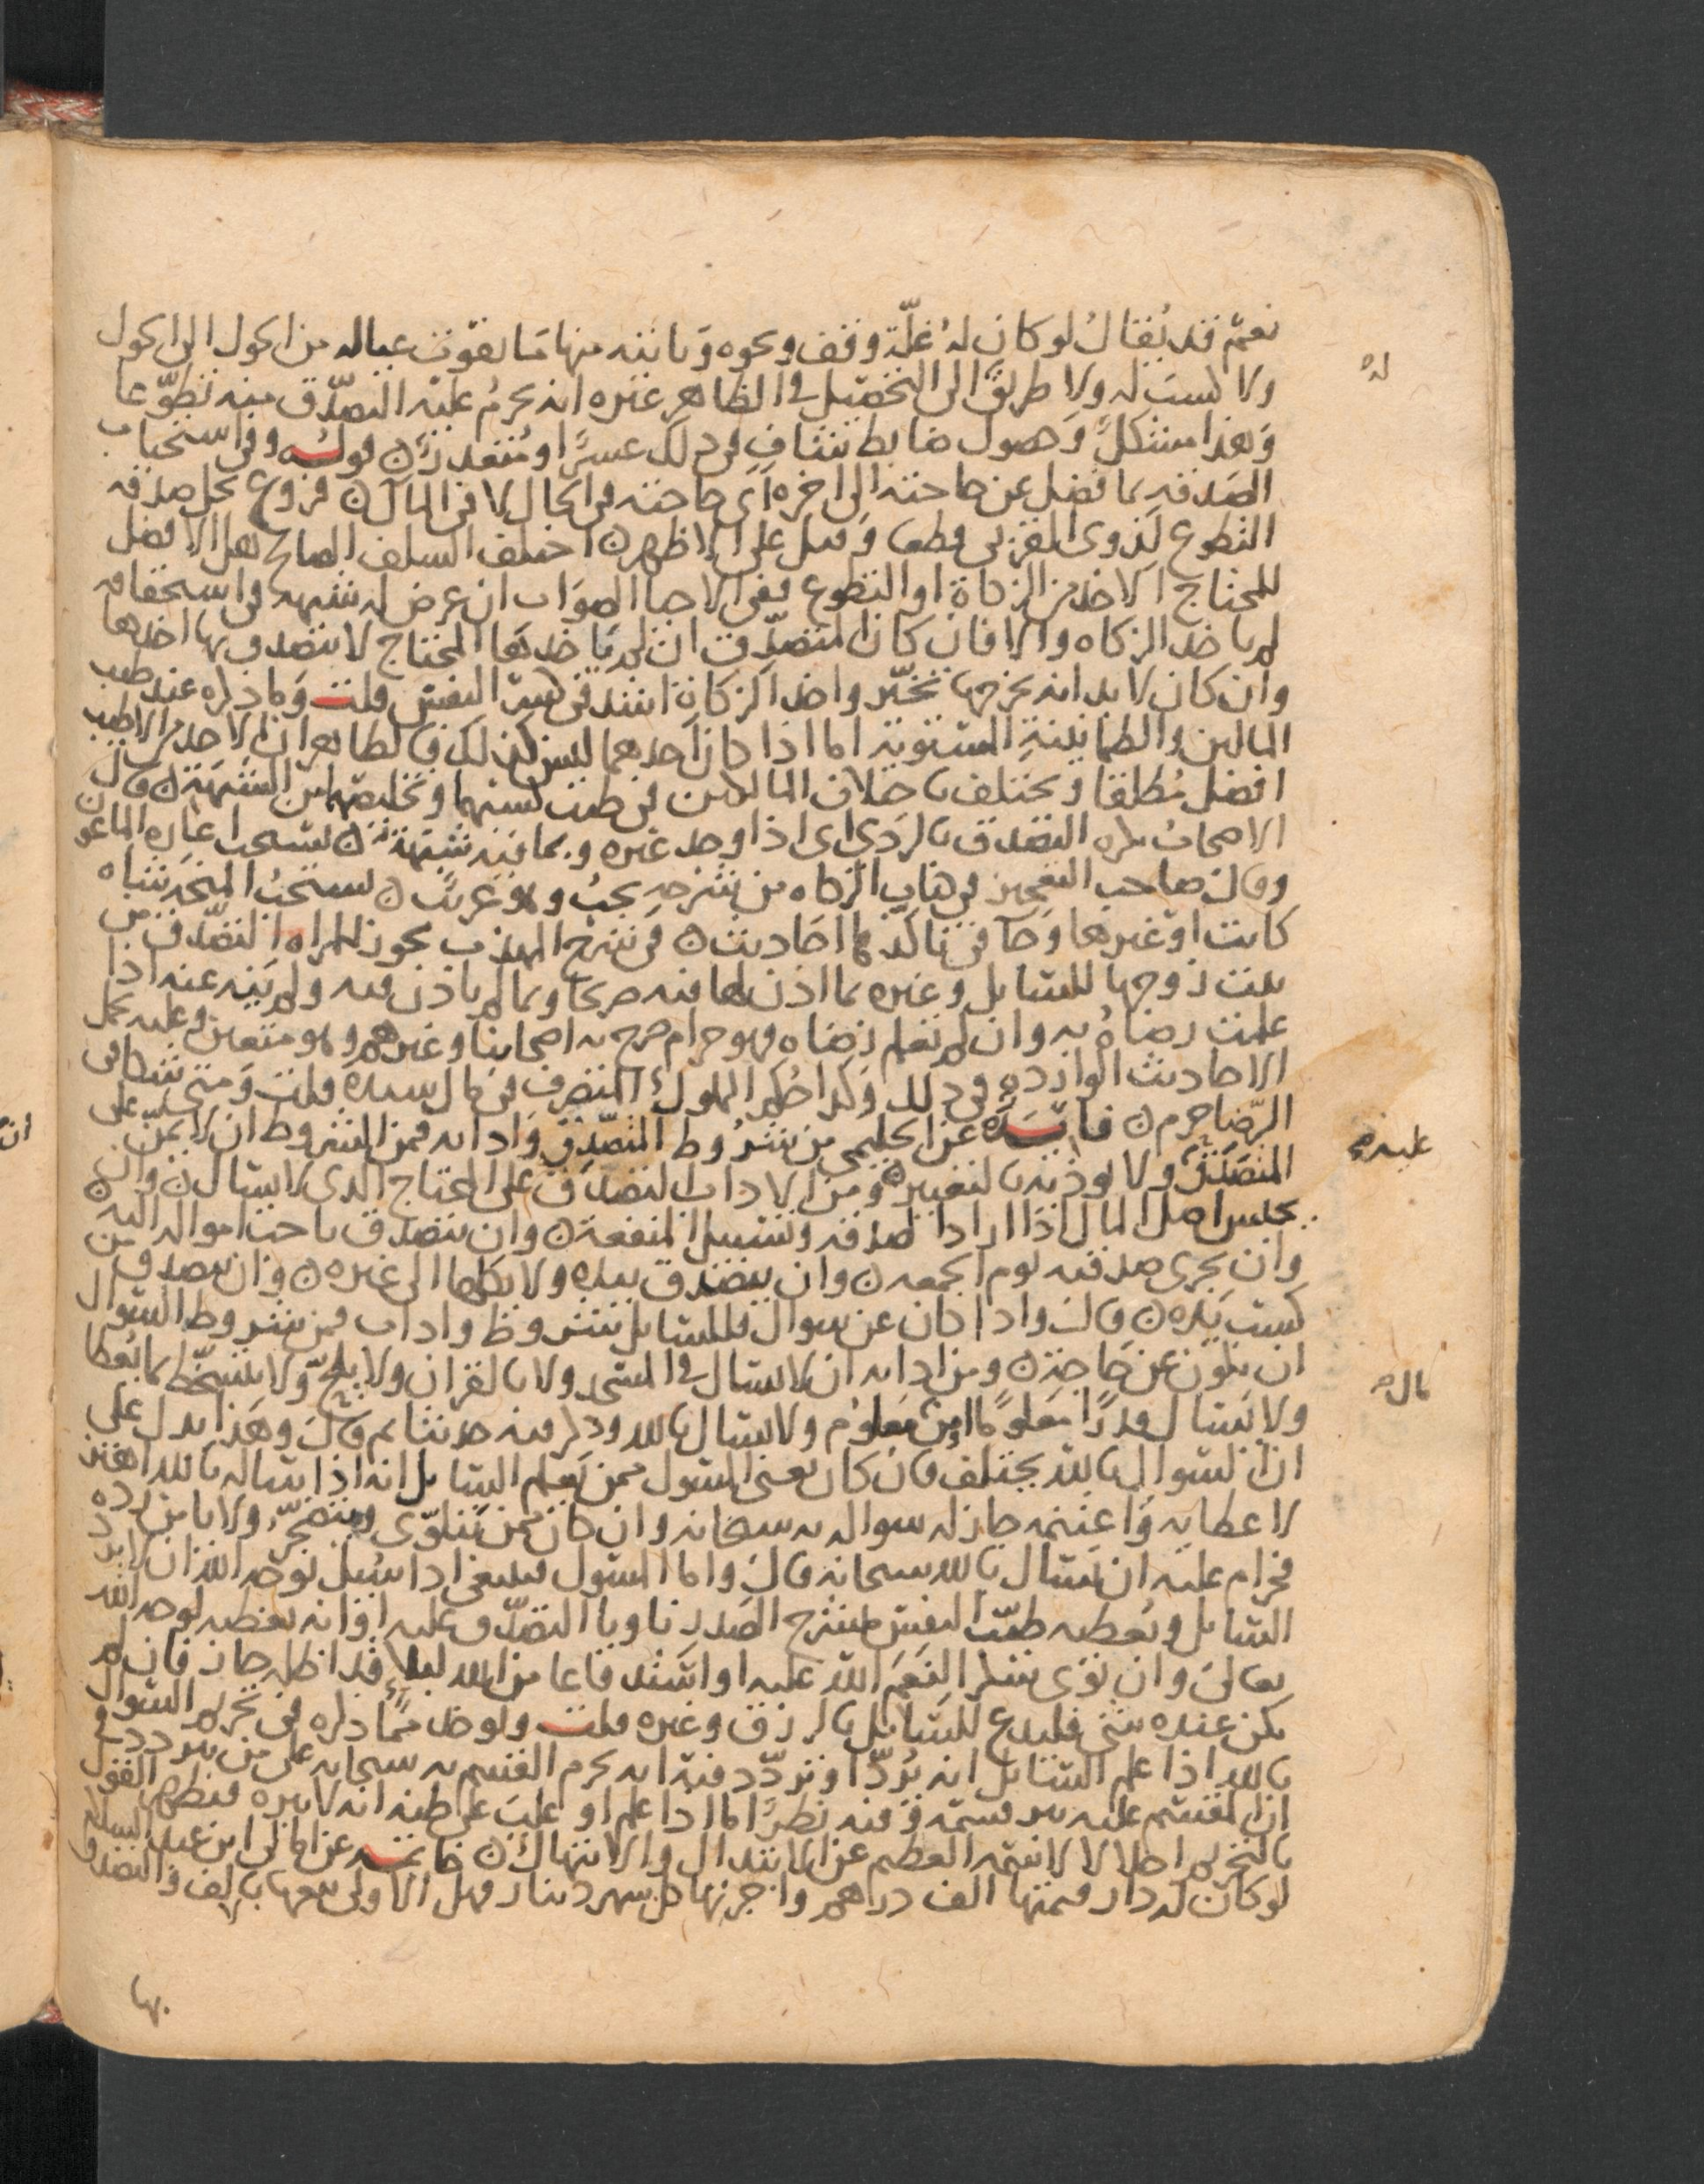 نعم قد يُقال لو كان لهُ غلّة وقف ونحوه وياتيه منها ما يقوت عياله من الحول الى الحول
ولا كسب له ولا طريق الى التحصيل في الظاهر غيره انه يحرمُ عليه التصدّق منه تطوّعا
وهذا مشكلٌ وحصول ضابط شاف في ذلك عسرٌ او مُتعذرٌ قولــه وفي استحباب
الصدقه بما فضل عن حاجته الى اخره اي حاجته في الحال لا في المال فروع تحل صدقه
التطوع لذوي القربى قطعا وقيل على الاظهر اختلف السلف الصالح هل الافضل
للمحتاج الاخذ من الزكاة او التطوع ففي الاحيا الصواب ان عرض له شبهه في استحقاقه
لم ياخذ الزكاه والا فان كان المتصدّق ان لم ياخذ هذا المحتاج لا يتصدق بها اخذها
وان كان لا بد انه يخرجها تخيّر واخذ الزكاة اشد في كسر النفس قلت وما ذكره عند طيب
المالين والطمانينة المستوية اما اذا كان احدهما ليس كذلك فالظاهر ان الاخذ من الاطيب
افضل مُطلقا ويختلف باختلاف المالكين في طيب كسبهما وتخليصهما من الشبهة قال
الاصحاب يكره التصدق بالردي اي اذا وجد غيره وبما فيه شبهة يستحب اعاره الماعون
وقال صاحب التعجيز في كتاب الزكاه من شرحه يجبُ وهو غريب يستحبُ المنحه شاه
كانت او غيرها وجا في تاكدها احاديث في شرح المهذب يجوز للمراه التصدّق من
بيت زوجها للسايل وغيره بما اذن لها فيه صريحا وبما لم ياذن فيه ولم ينه عنه اذا
علمت رضاهُ به وان لم تعلم رضاه فهو حرام صرح به اصحابنا وغيرهم وهو متعين وعليه تحمل
الاحاديث الوارده في ذلك وكذا حُكم المملوك المتصرف في مال سيده قلت ومتى شكا في
الرّضا حرم فايــده عن الحليمي من شرُوط المتصّدق وادابه فمن الشروط ان لا يمنّ على
المتصَدّق ولا يوذيه بالتعيير ومن الاداب التصدّق على المحتاج الذي لا يسال وان
يحبس اصل المال اذا اراد الصدقه وتسبيل المنفعة وان يتصدق باحب امواله اليه
وان يجري صدقته يوم الجمعه وان يتصدق بيده ولا يكلها الى غيره وان يتصدق من
كسب يده قال واذا كان عن سوال فللسايل شروط واداب فمن شروط السوال
ان يكون عن حاجة ومن ادابه ان لا يسال في المسجد ولا بالقران ولا يلحّ ولا يتسخّط بما يُعطا
ولا يسال قدرًا معلومًا من معلوم ولا يسال بالله وذكر فيه حديثا ثم قال وهذا يدل على
ان السوال بالله يختلف فان كان يعني المسول ممن يعلم السايل انه اذا ساله بالله اهتز
لاعطايه واغتنمه جاز له سواله به سبحانه وان كان ممن يتلوّى ويتضجّر ولا يامن رده
فحرام عليه ان يسال بالله سبحانه قال واما المسول فينبغي اذا سُيل بوجه الله ان لا يرد
السايل ويُعطيه طيّب النفس منشرح الصدر ناويا التصدّق عليه او انه يعطيه لوجه الله
تعالى وان نوى شكرا لنعم الله عليه او استدفاعا من الله لبلاءٍ قد اظله جاز فان لم
يكن عنده شي فليدع للسايل بالرزق وغيره قلت ويوخذ ممّا ذكره في تحريم السوال
بالله اذا علم السايل انه يُردّ او تردّد فيه انه يحرم القسم به سبحانه على من يتردد في
ان المقسم عليه يبر قسمه وفيه نظرٌ اما اذا علم او غلب على ظنه انه لا يبره فيظهر القول
بالتحريم اجلالا لاسمه العظيم عن الابتذال والانتهاك خاتمــه عن امالي ابن عبد السلام
لو كان له دار قيمتها الف دراهم واجرتها كل شهر دينار فهل الاولى بيعها بالف والتصدق
بها
له
عليه
مال